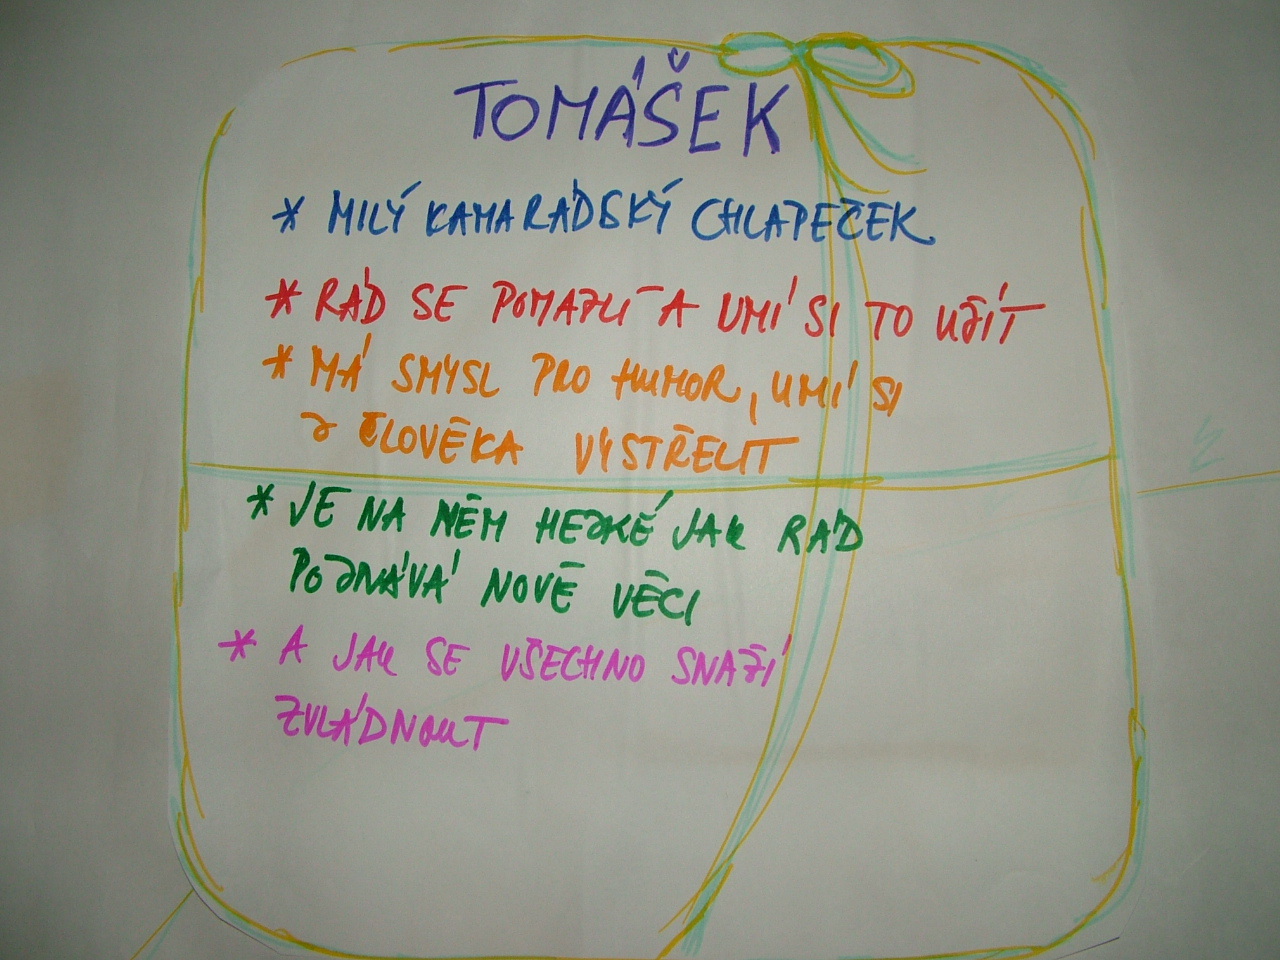 TOMÁŠEK
* MILÝ KAMARÁDSKÝ CHLAPEČEK
* RÁD SE POMAZLÍ A UMÍ SI TO UŽÍT
* MÁ SMYSL PRO HUMOR, UMÍ SI
Z ČLOVĚKA VYSTŘELIT
* JE NA NĚM HEZKÉ JAK RÁD
POZNÁVÁ NOVÉ VĚCI
* A JAK SE VŠECHNO SNAŽÍ
ZVLÁDNOUT